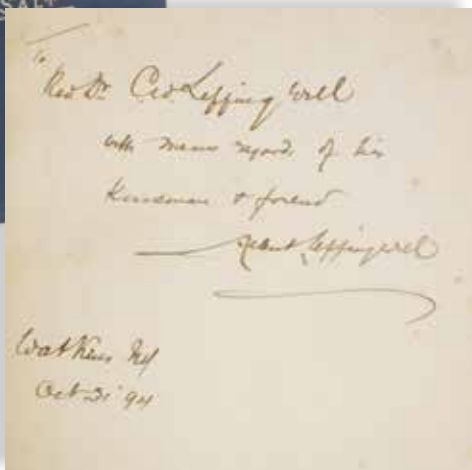 SALT
To
Rev Dr. C.W. Leffingwell
with warm regards of his
Kinsman & friend
Albert Leffingwell
Watkins NY
Oct 21 '94